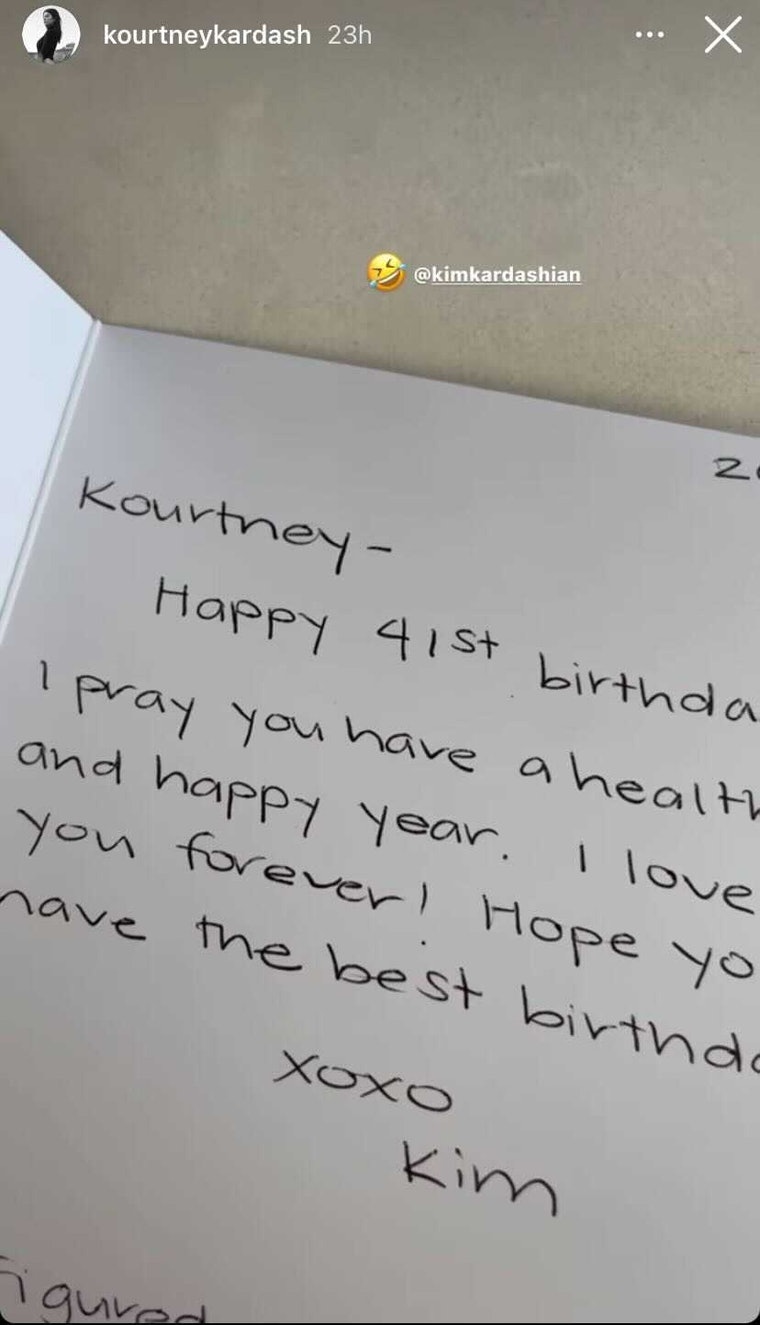 kourtneykardash 23h
🤣 @kimkardashian
Kourtney-
Happy 41st
I pray you have a
and happy year. I love
you forever! Hope
have the best
xoxo
Kim